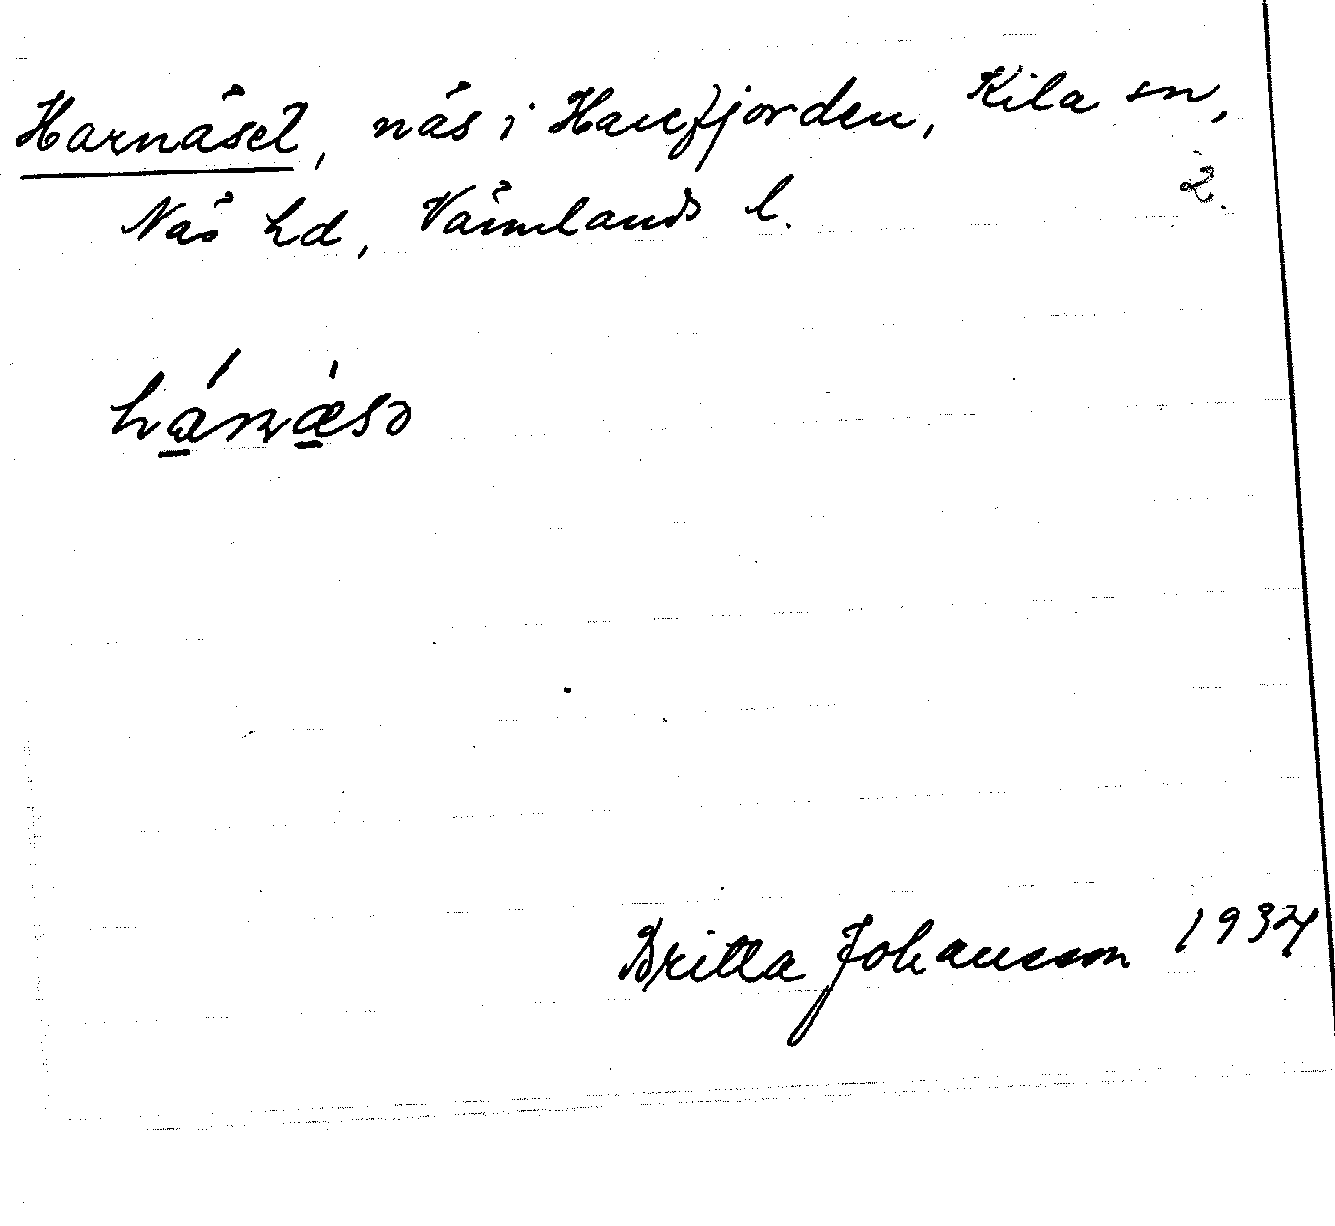 Harnäset, näs i Harefjorden, Kila sn,
Näs hd, Värmlands l. 2.
Britta Johansson 1934